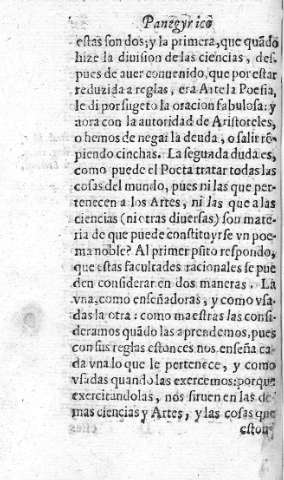 Panegyrico
estas son dos; y la primera, que quãdo
hize la diuision de las ciencias, des.
pues de auer conuenido, que por estar
reduzida a reglas, era Arte la Poesia,
le di por sugeto la oracion fabulosa: y
aora con la autoridad de Aristoteles,
o hemos de negar la deuda, o salir rõ-
piendo cinchas. La segũda duda es,
como puede el Poeta tratar todas las
cosas del mundo, pues ni las que per-
tenecen a los Artes, ni las que a las
ciencias (ni otras diuersas) son mate-
ria de que puede constituyrse vn poe-
ma noble? Al primer pũto respondo,
que estas facultades racionales se pue
den considerar en dos maneras. La
vna, como enseñadoras, y como vsa-
das la otra: como maestras las consi-
deramos quãdo las aprendemos, pues
con sus reglas estonces nos enseña ca-
da vna lo que le pertenece, y como
vsadas quando las exercemos: porque
exercitandolas, nos siruen en las de-
mas ciencias y Artes, y las cosas que
eston-